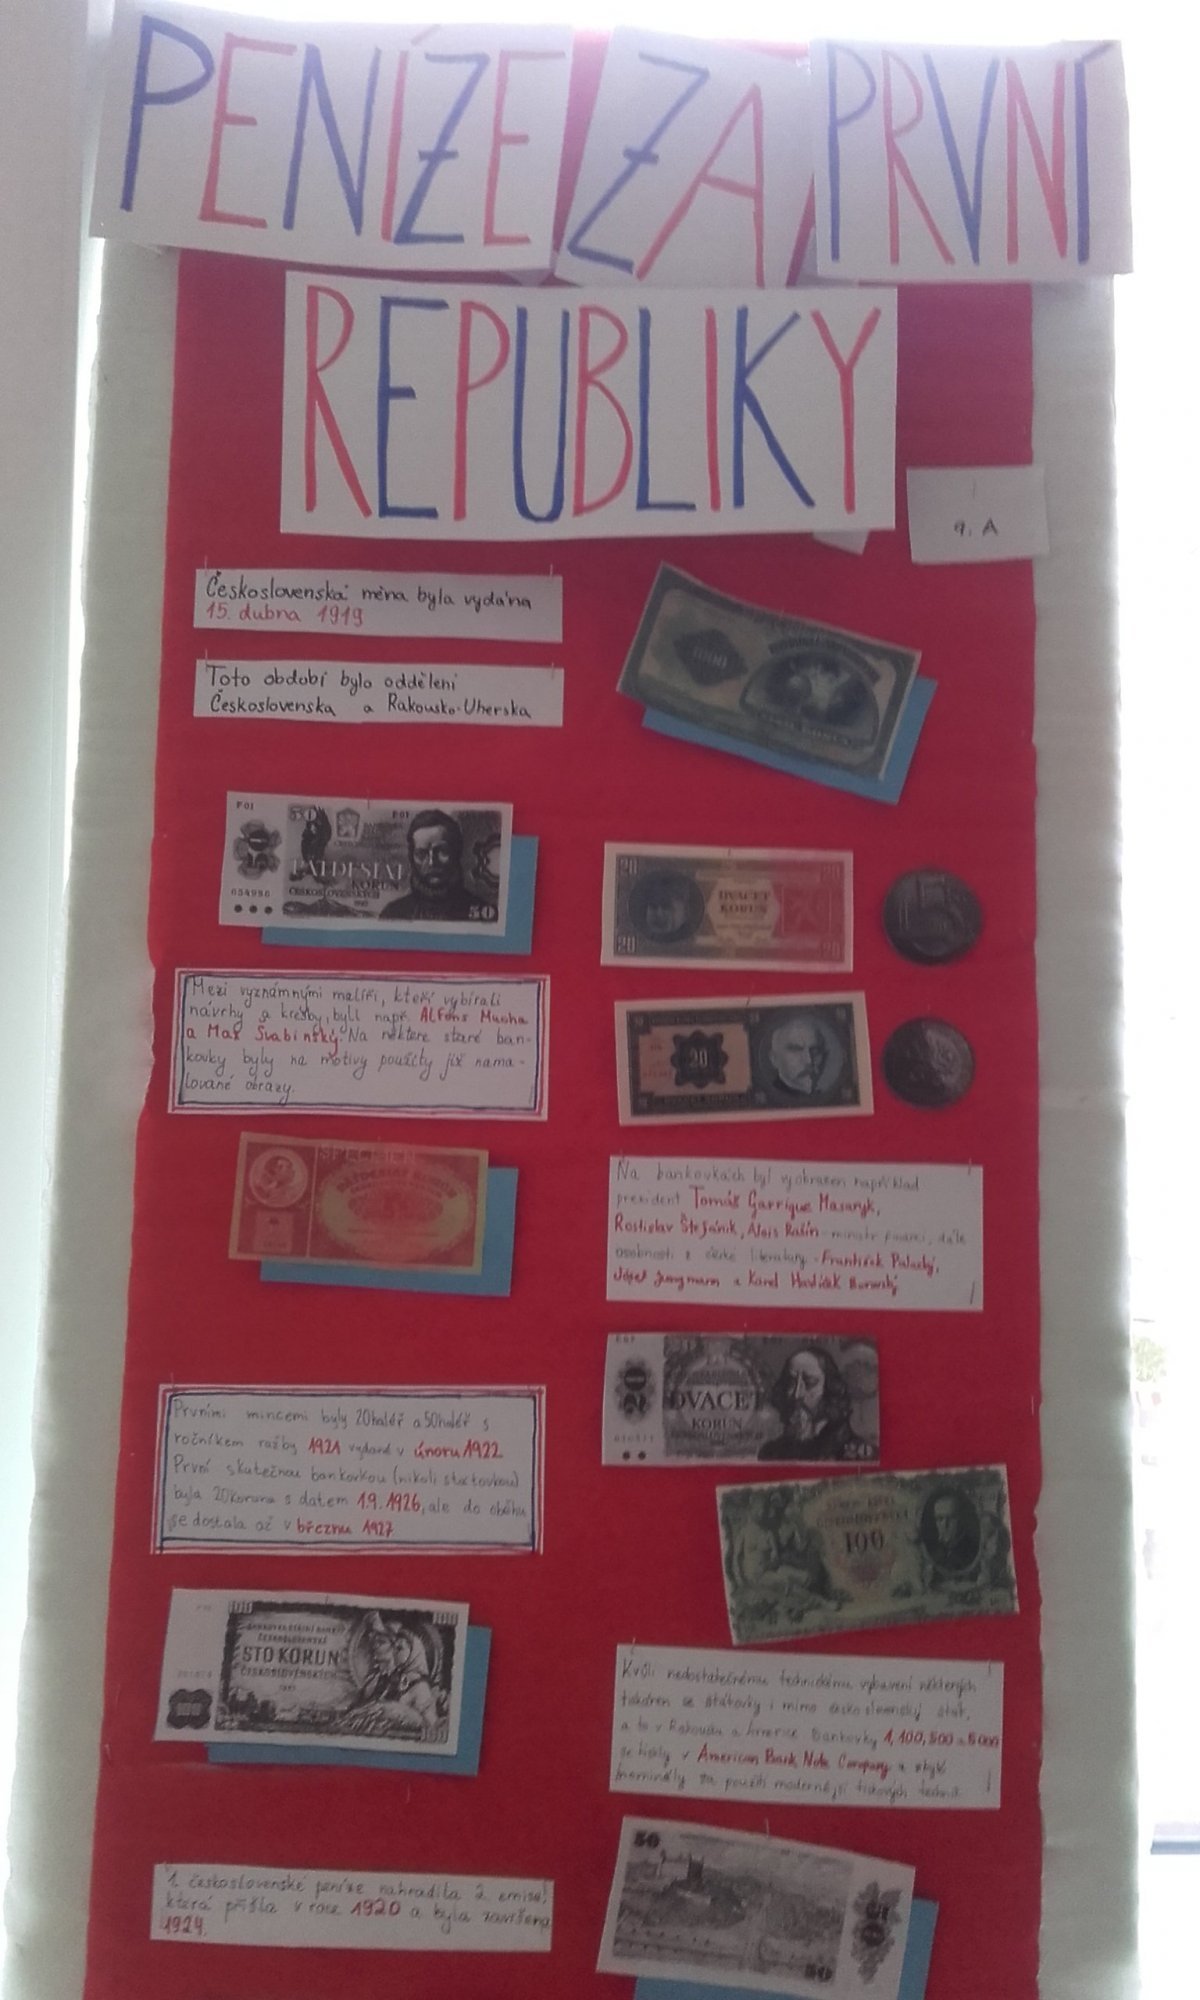 PENÍZE ZA PRVNÍ
REPUBLIKY
9. A
Československá měna byla vydána
15. dubna 1919
Toto období bylo oddělení
Československa a Rakousko-Uherska
1000
F 01
F 01
PADESÁT
KORUN
ČESKOSLOVENSKÝCH
054996
50
20
20
DVACET
KORUN
20
20
5
Mezi významnými malíři, kteří vybírali
návrhy a kresby, byli např. Alfons Mucha
a Max Švabinský. Na některé staré ban-
kovky byly na motivy použity již nama-
lované obrazy.
20
SPECIMEN
Na bankovkách byl vyobrazen například
prezident Tomáš Garrigue Masaryk,
Rostislav Štefánik, Alois Rašín - ministr financí, dále
osobnosti z české literatury - František Palacký,
Josef Jungmann a Karel Havlíček Borovský
DVACET
KORUN
20
Prvními mincemi byly 20haléř a 50haléř s
ročníkem ražby 1921 vydané v únoru 1922
První skutečnou bankovkou (nikoli státovkou)
byla 20koruna s datem 1.9.1926, ale do oběhu
se dostala až v březnu 1927
100
100
100
STO KORUN
ČESKOSLOVENSKÝCH
Kvůli nedostatečnému technickému vybavení některých
tiskáren se státovky i mimo československý stát,
a to v Rakousku a Americe Bankovky 1, 100, 500 a 5000
se tiskly v American Bank Note Company a
nominály za použití modernější tiskových technik
1. československé peníze nahradila 2. emise,
která přišla v roce 1920 a byla završena
1924.
50
50
50